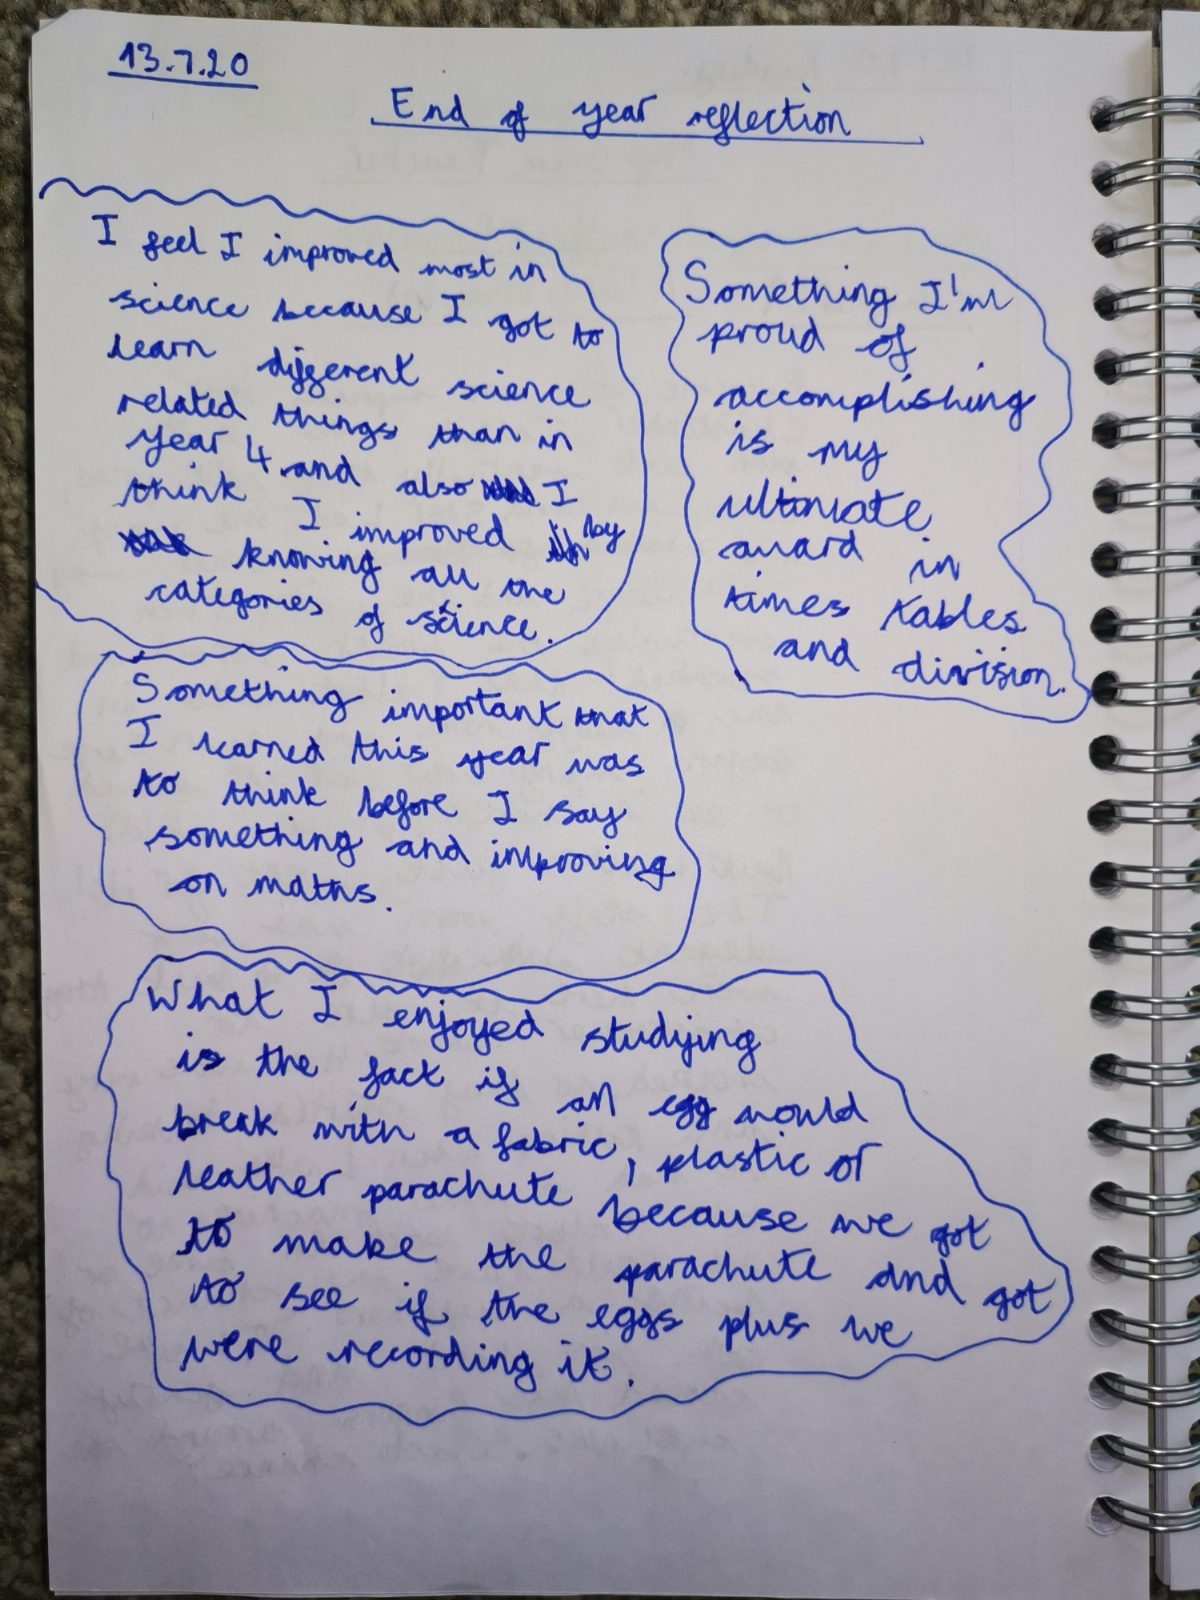 13.7.20
End of year reflection
I feel I improved most in
science because I got to
learn different science
related things than in
year 4 and also I
think I improved by
knowing all the
categories of science.
Something I'm
proud of
accomplishing
is my
ultimate
award in
times tables
and division.
Something important that
I learned this year was
to think before I say
something and improving
on maths.
What I enjoyed studying
is the fact if an egg would
break with a fabric, plastic or
leather parachute because we got
to make the parachute and got
to see if the eggs plus we
were recording it.